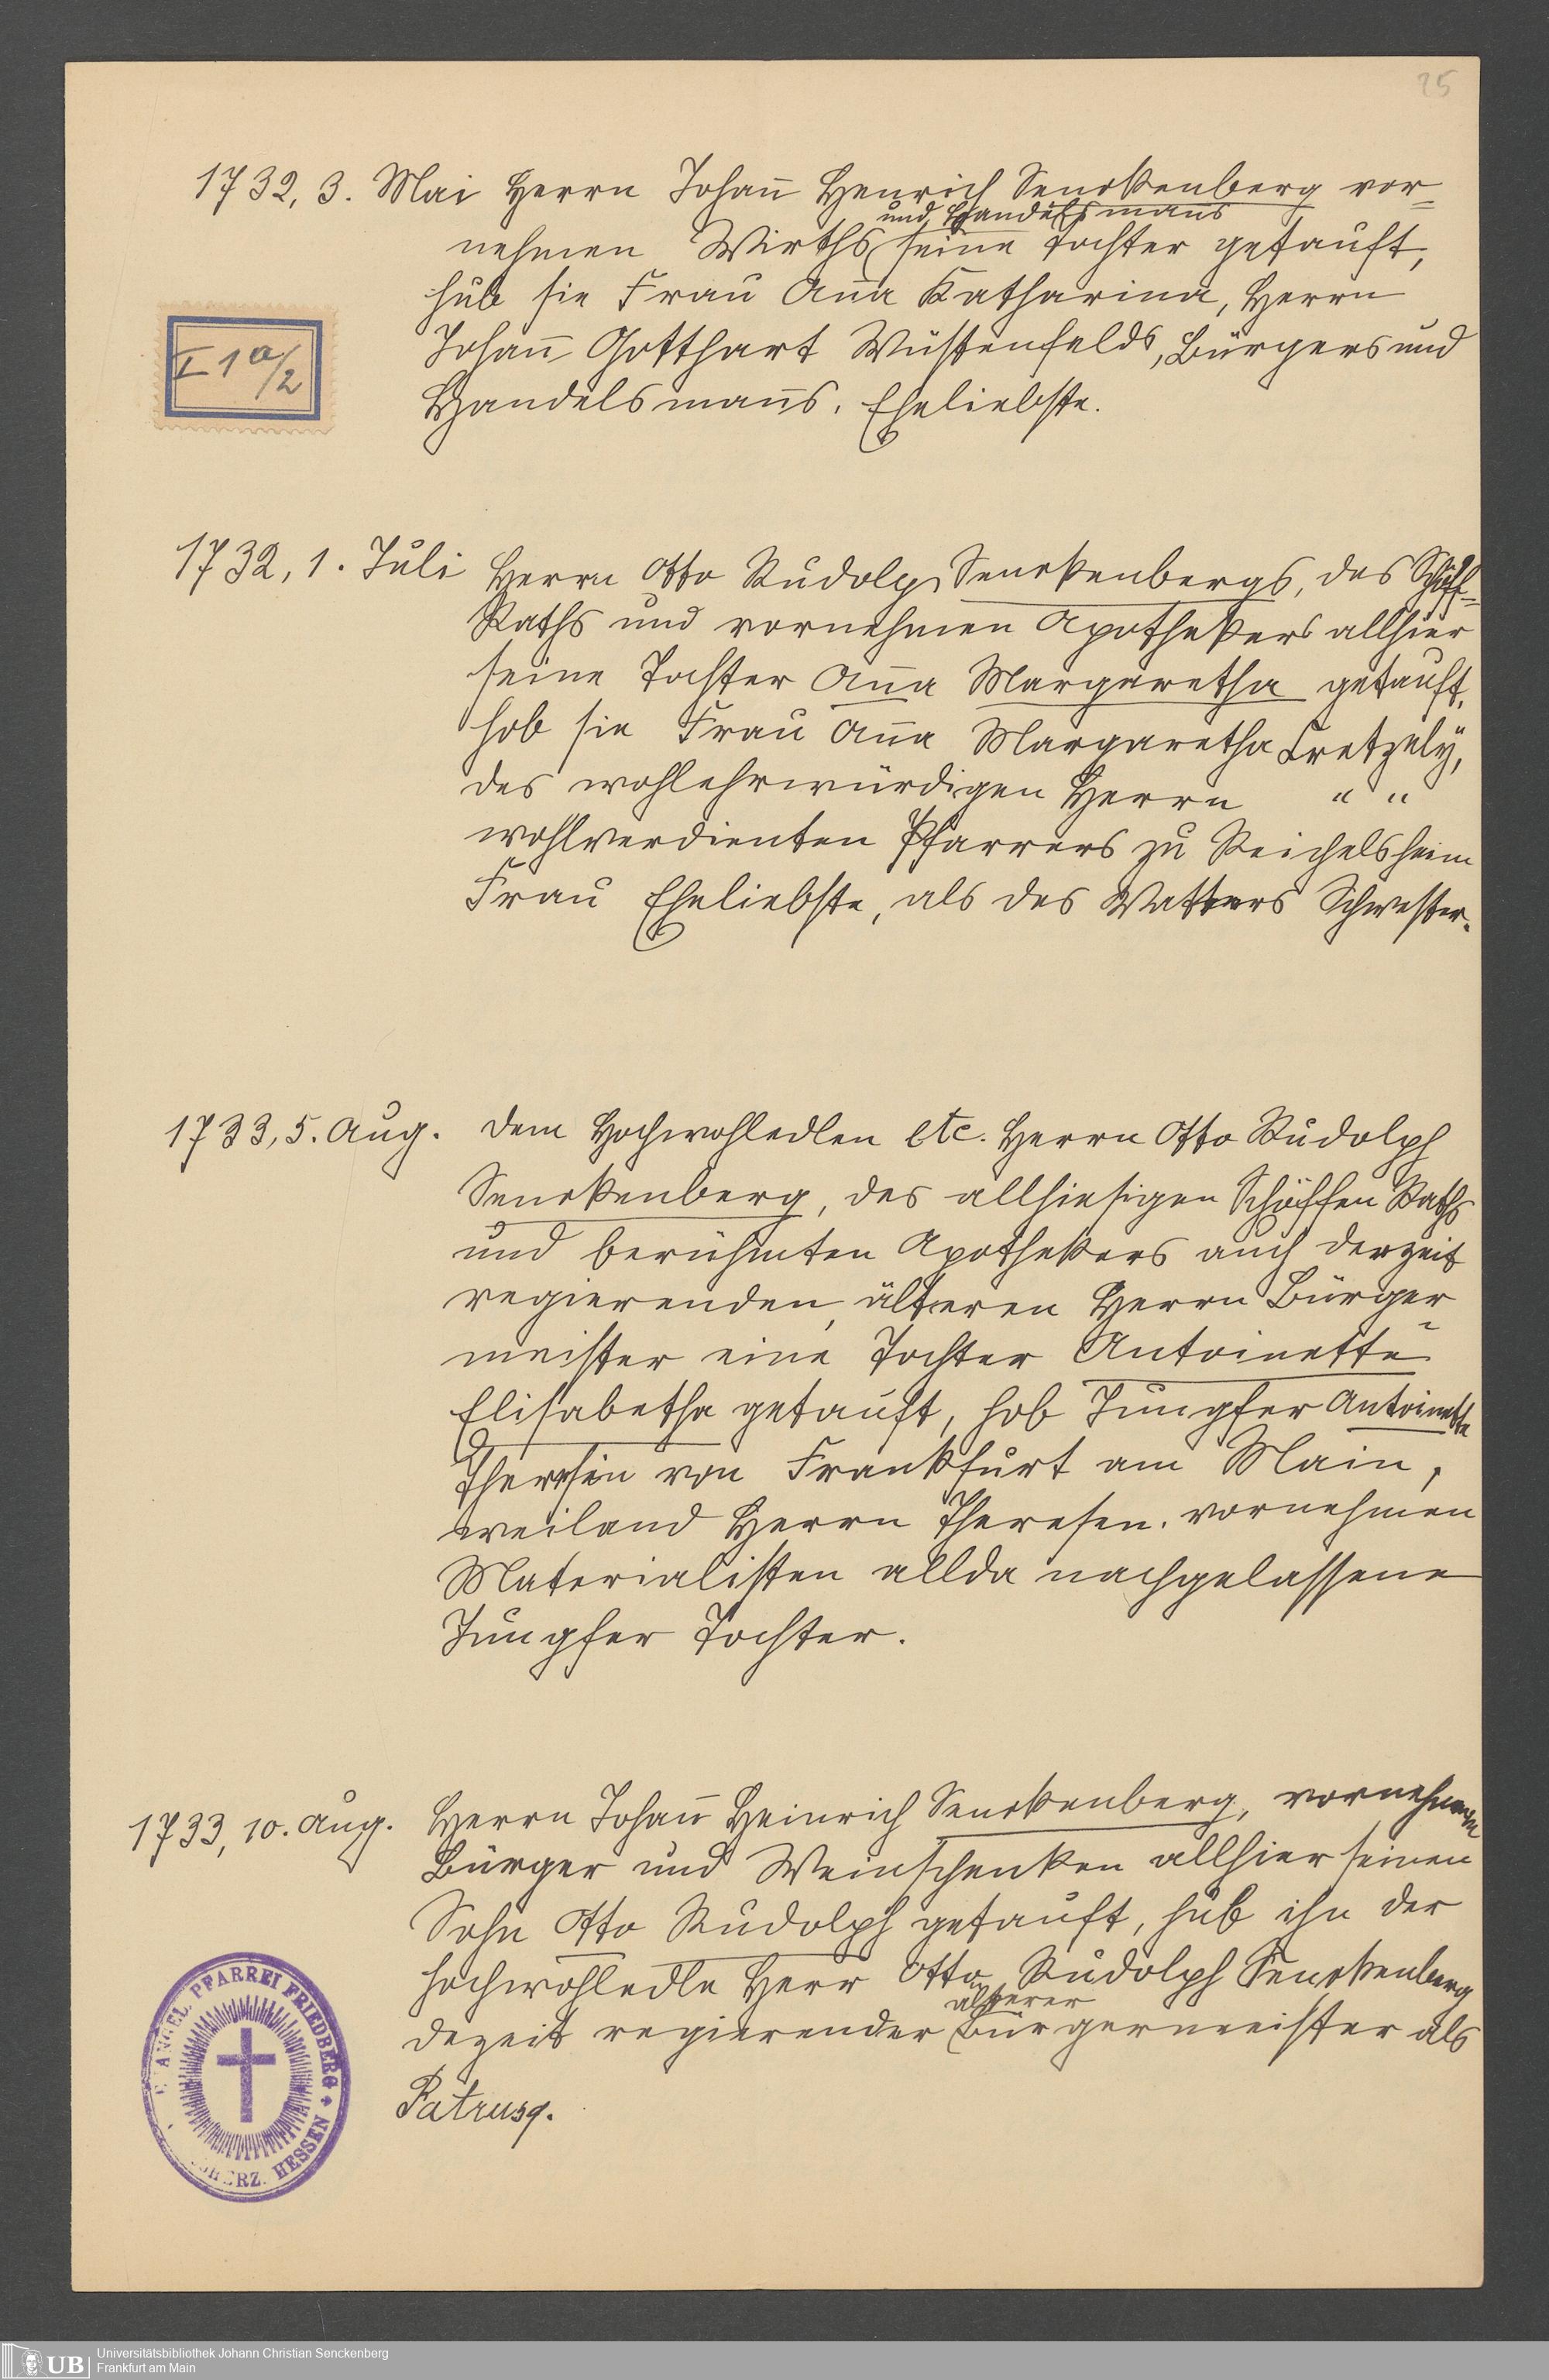 25
1732, 3. Mai Herrn Johan̅ Henrich Senckenberg vor=
und Handelsmans
nehmen Wirths seine Tochter getauft,
hub sie Frau An̅a Katharina, Herrn
Johan̅ Gotthart Wüstenfelds, Bürgers und
Handelsman̅s, Eheliebste.
I 1 a/2
1732, 1. Juli Herrn Otto Rudolp Senckenbergs, des Schöff=
Raths und vornehmen Apothekers allhier
seine Tochter An̅a Margaretha getauft,
hob sie Frau An̅a Margaretha Cretzely,
des wohlehrwürdigen Herrn " "
wohlverdienten Pfarrers zu Reichelsheim
Frau Eheliebste, als des Vatters Schwester.
1733, 5. Aug. dem Hochwohledlen etc. Herrn Otto Rudolph
Senckenberg, des allhiesigen Schöffen Raths
und berühmten Apothekers auch derzeit
regierenden, älteren Herrn Bürger
meister eine Tochter Antoinette
Elisabetha getauft, hob Jungfer Antoinette
Theresin von Frankfurt am Main,
weiland Herrn Theresen. vornehmen
Materialisten allda nachgelassene
Jungfer Tochter.
1733, 10. Aug. Herrn Johan̅ Heinrich Senckenberg, vornehmen
Bürger und Weinschenken allhier seinen
Sohn Otto Rudolph getauft, hub ihn der
hochwohledle Herr Otto Rudolph Senckenberg
älterer
dezeit regierender Bürgermeister als
Patrusq.
EVANGEL. PFARREI FRIEDBERG * HERZ. HESSEN
UB Universitätsbibliothek Johann Christian Senckenberg
Frankfurt am Main